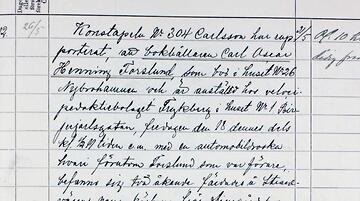 26/5
Konstapeln No 304 Carlsson har rap-
porterat, att bokhållaren Carl Oscar
Henning Torslund, som bor i huset No 26
Nybrohamnen och är anställd hos veloci-
pedaktiebolaget Frykberg i huset No 1 Bir-
gerjarlsgatan, fredagen den 13 dennes dels
kl. tiden e.m. med en automobildroska
hvari förutom Torslund som var förare,
befunno sig två åkande färdades å Strand-